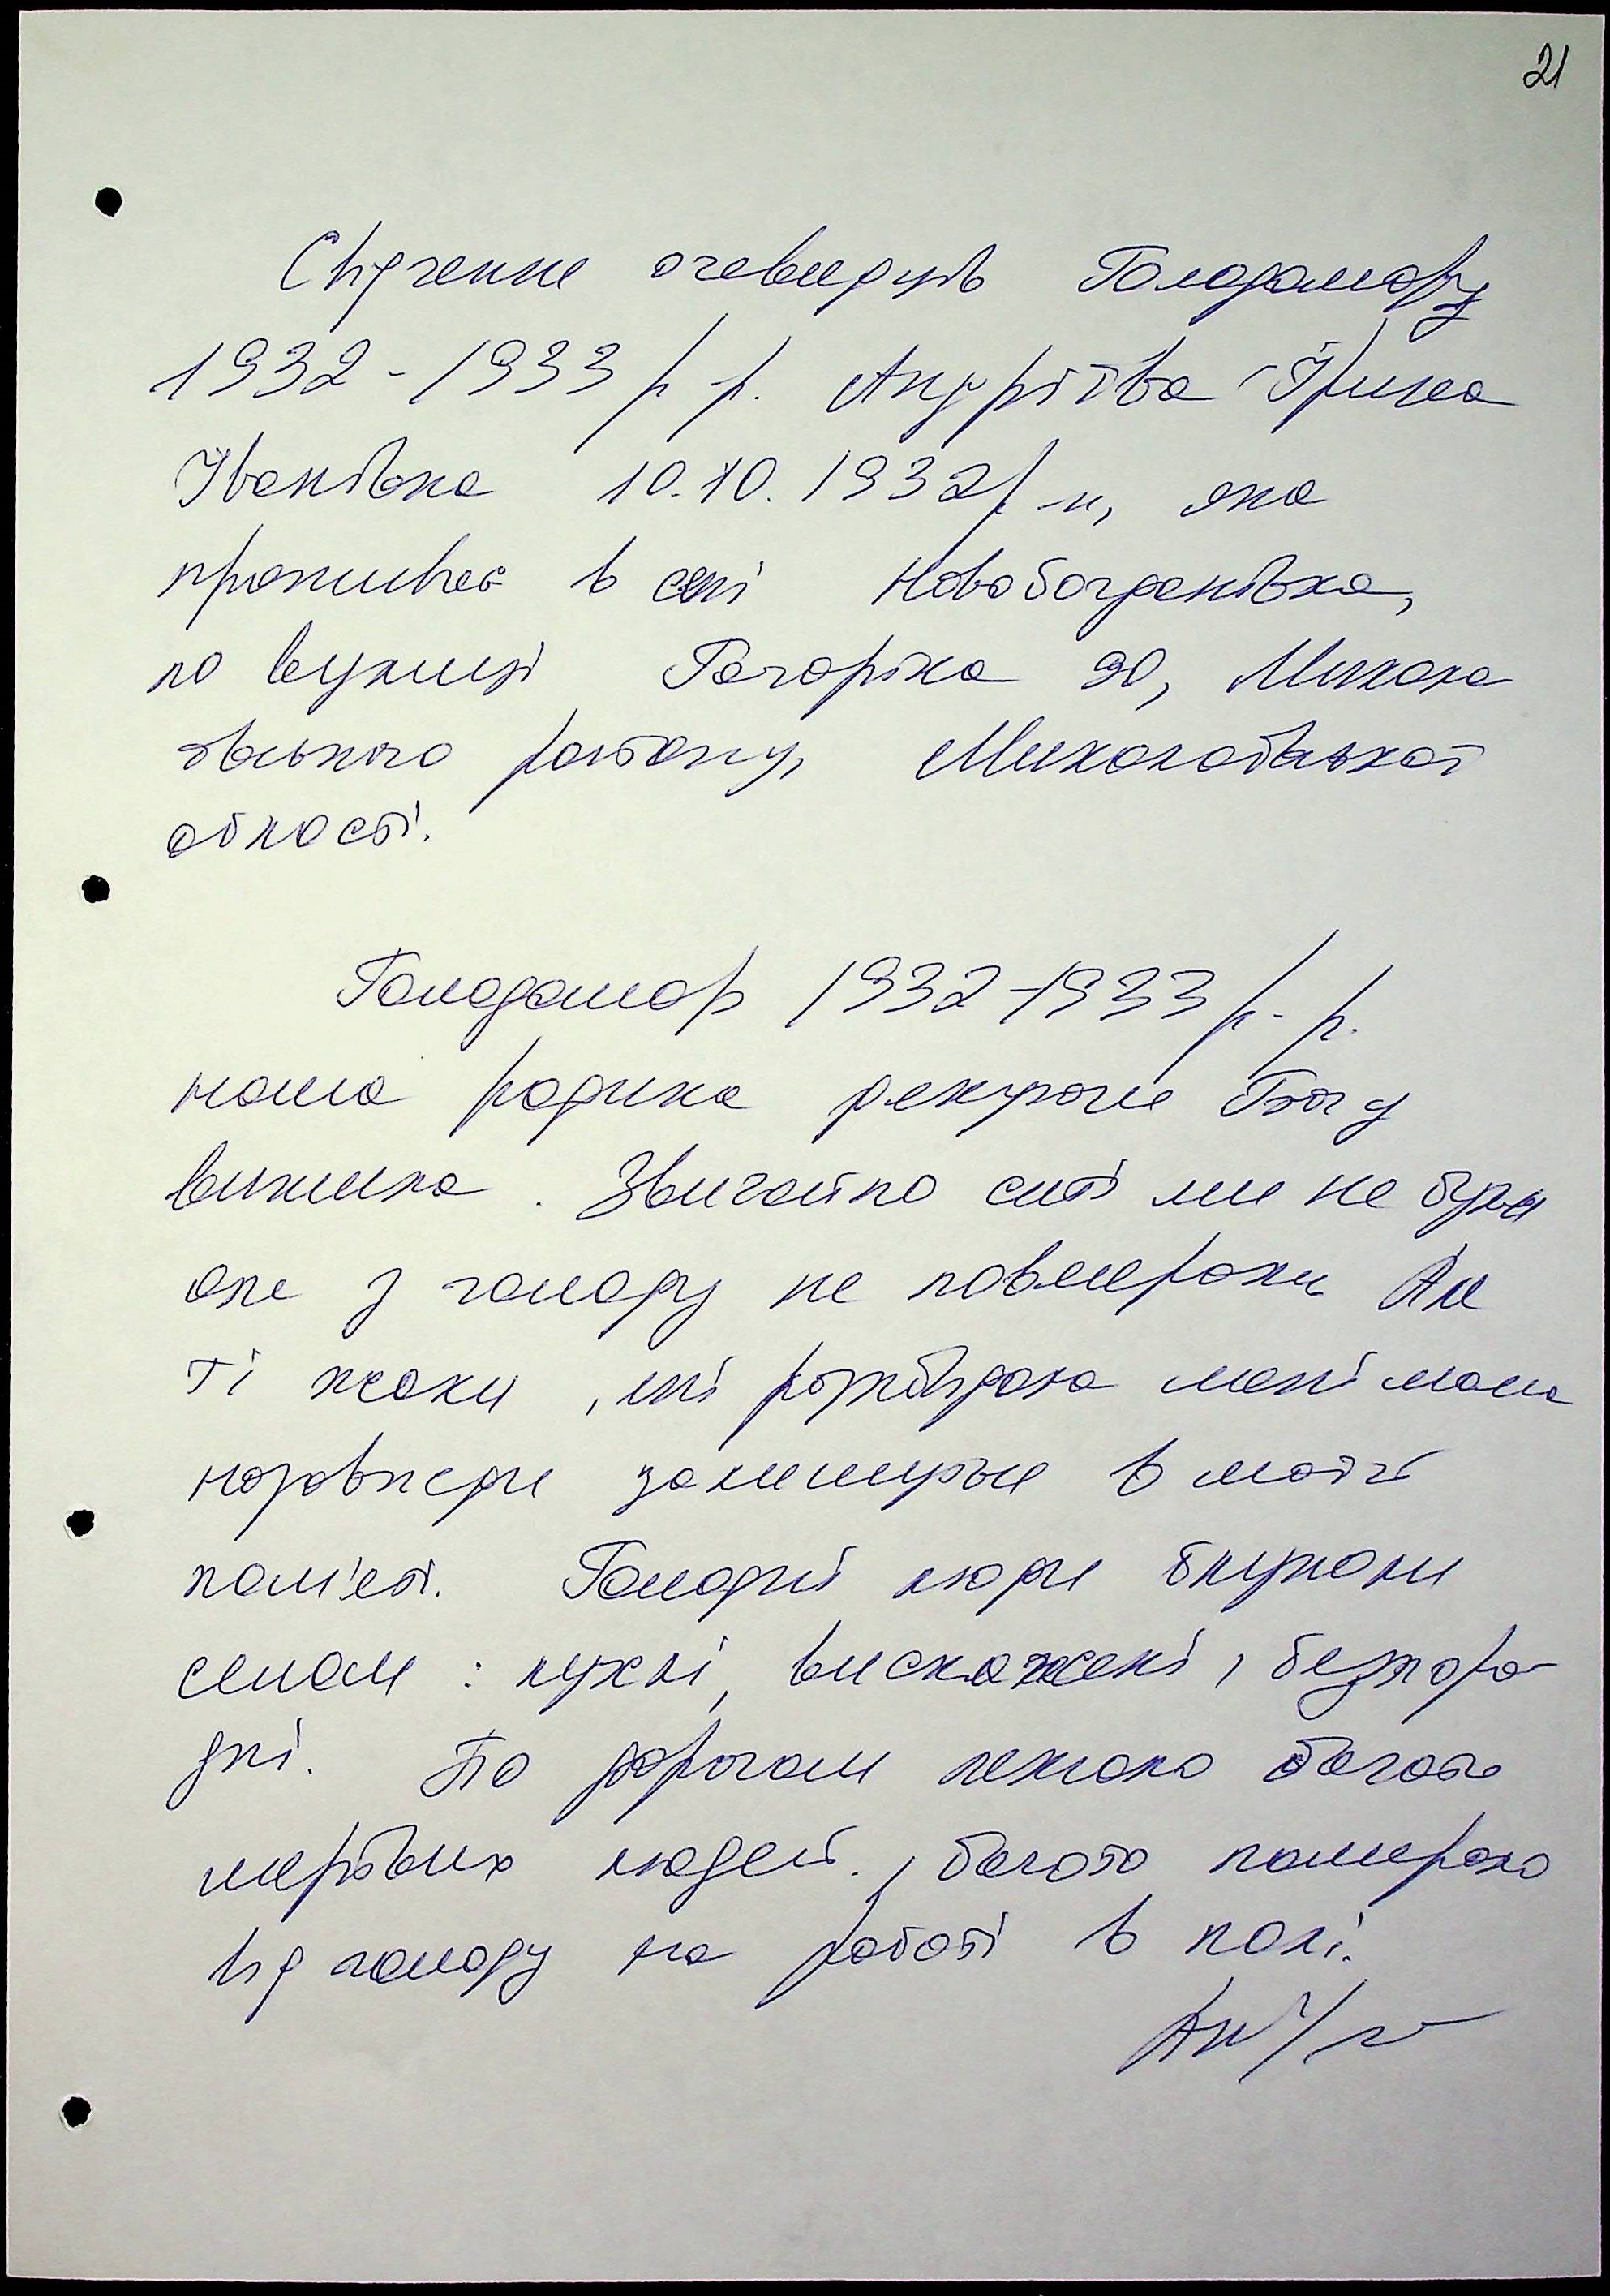 21
Свідчення очевидців Голодомору
1932-1933 р.р. Андріїва Ірина
Іванівна 10.10.1932р.н, яка
проживає в селі Новобогданівка,
по вулиці Гагаріна 20, Микола
ївського району, Миколаївської
області.
Голодомор 1932-1933 р.р.
наша родина дякуючи Богу
вижила. Звичайно ситі ми не були
але з голоду не повмирали. Але
ті жахи, які розповідала мені мама
назавжди залишуться в моїй
пам'яті. Голодні люди блукали
селом: пухлі, виснажені, безпора-
дні. По дорогам лежало багато
мертвих людей., багато померало
від голоду на роботі в полі.